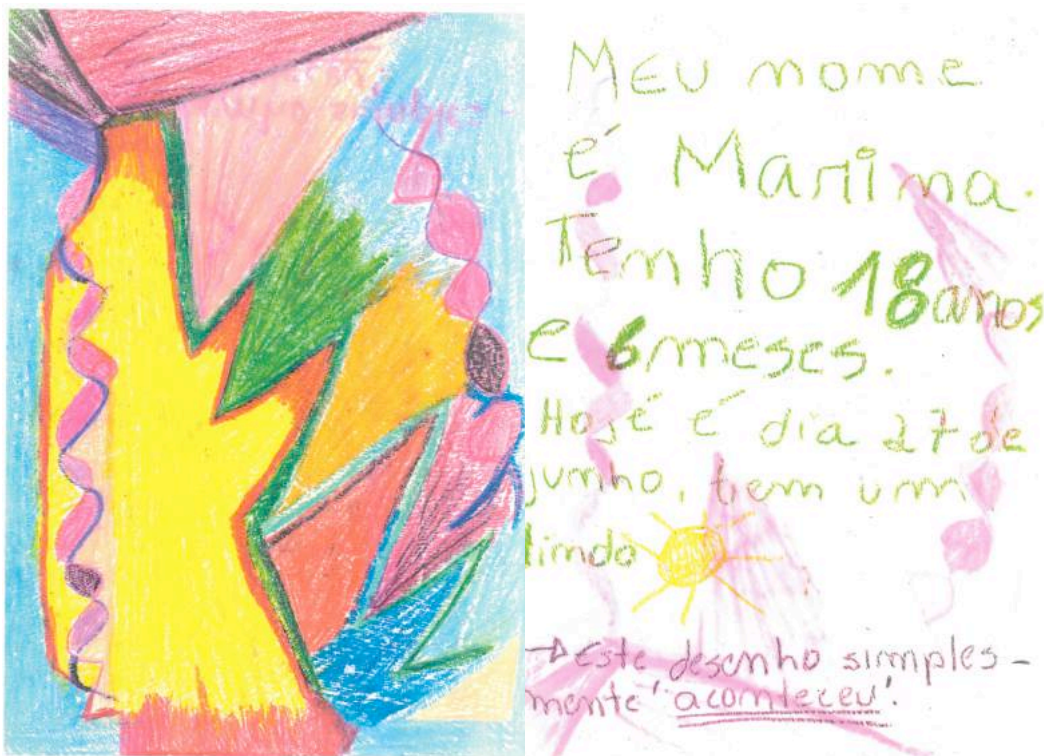 MEU nome
é Marina.
Tenho 18 anos
e 6 meses.
Hoje é dia 27 de
junho, tem um
lindo
→ Este desenho simples-
mente 'aconteceu'.